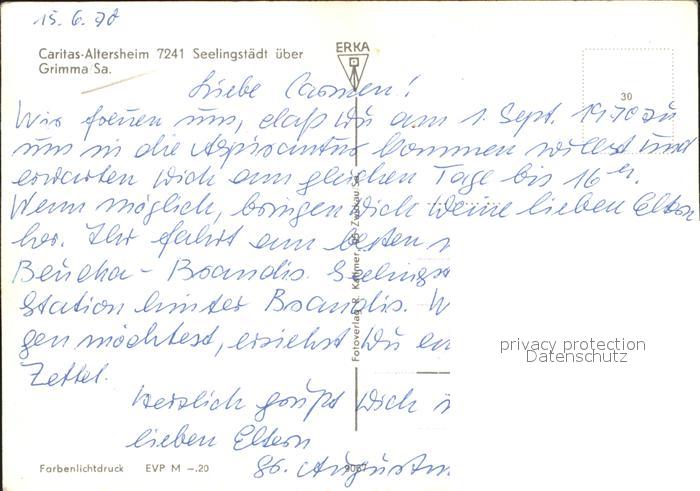 15.6.70
Caritas-Altersheim 7241 Seelingstädt über
Grimma Sa.
ERKA
30
Liebe Carmen!
Wir freuen uns, daß Du am 1. Sept. 1970 zu
uns in die Aspirantur kommen willst und
erwarten Dich am gleichen Tage bis 16
Wenn möglich, bringen Dich Deine lieben Eltern
her. Ihr fahrt am besten
Beucha - Brandis. Seelingst
Station hinter Brandis. W
gen möchtest, ersiehst Du
Zettel.
Herzlich grüßt Dich
lieben Eltern
Fotoverlag R. Kallmer, 95 Zwickau Sa.
privacy protection
Datenschutz
Farbenlichtdruck EVP M -.20